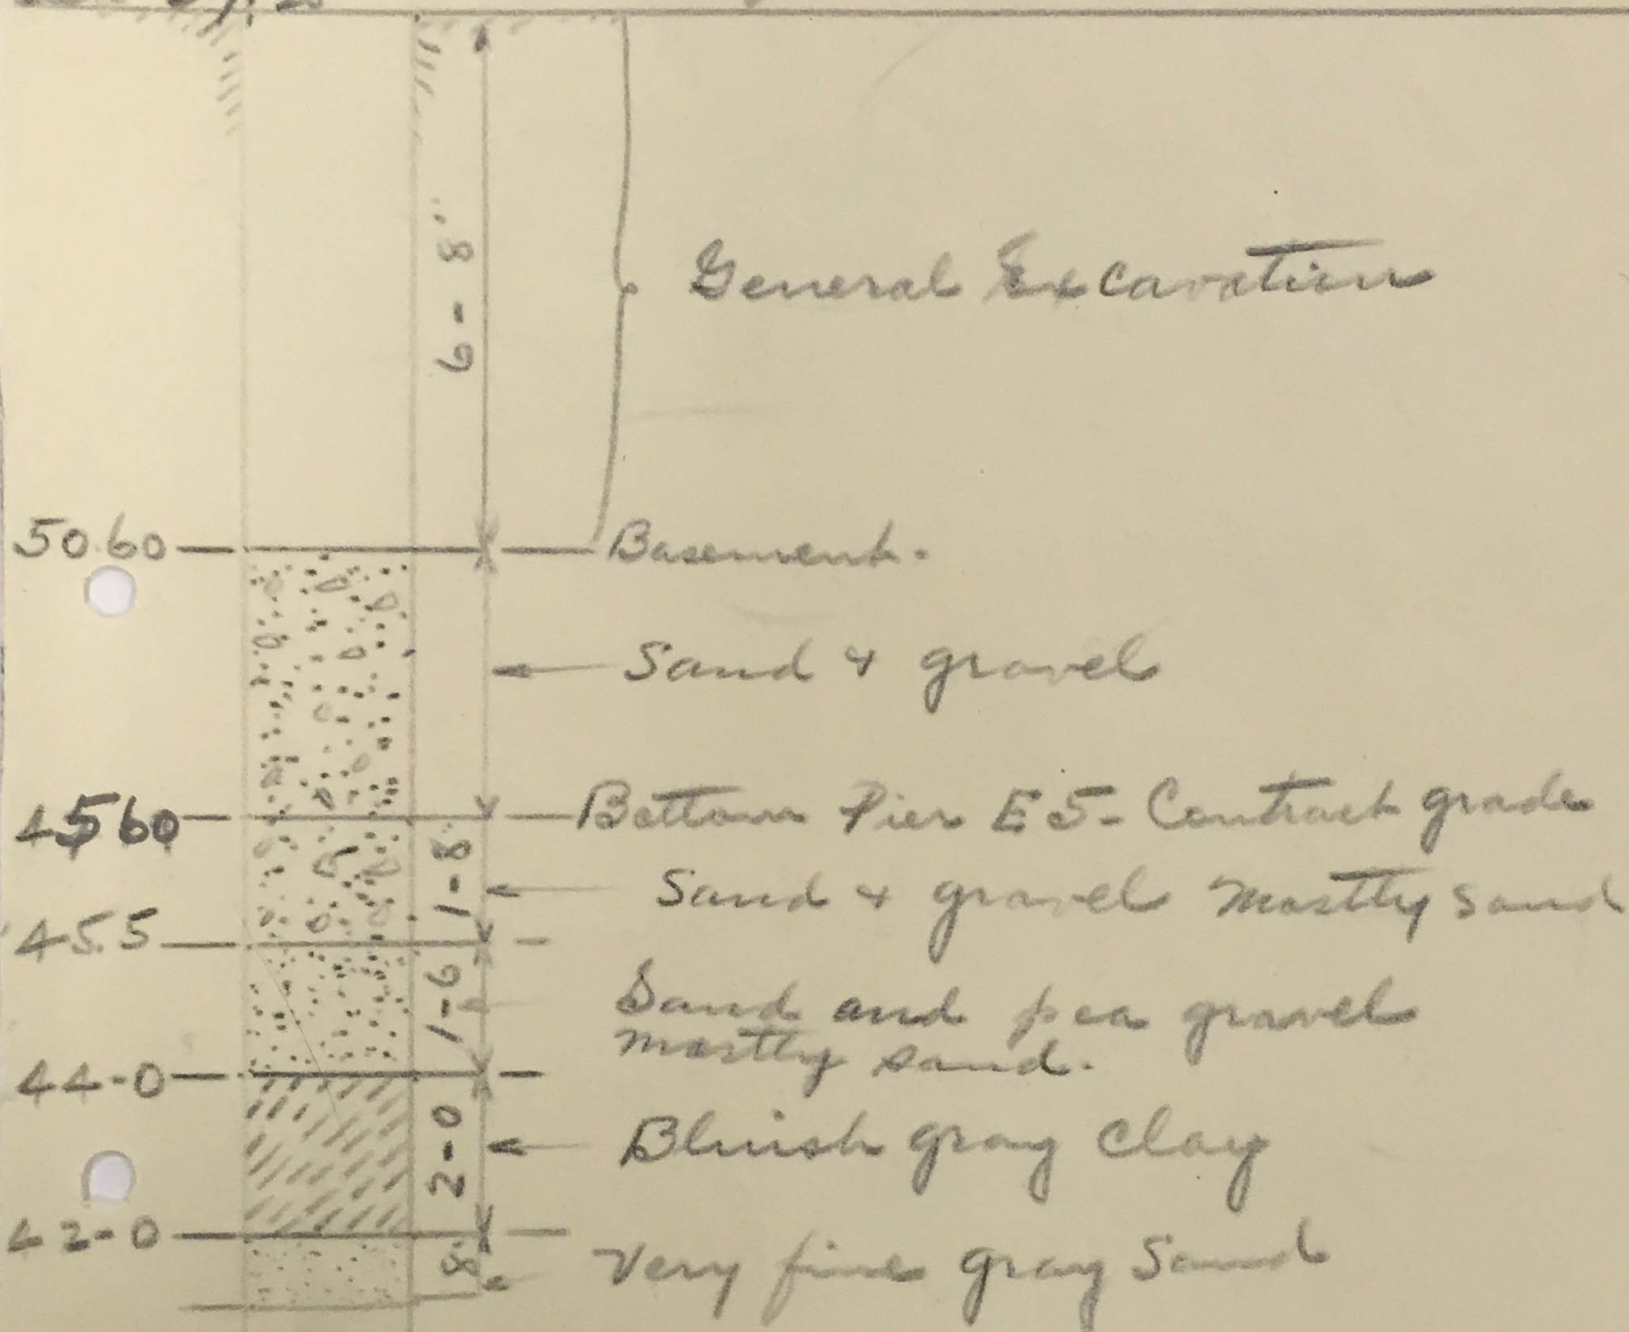 6-8"
General Excavation
50.60
Basement.
Sand & gravel
4560
Bottom Pier E5- Contract grade
1-8"
Sand & gravel Mostly Sand
45.5
1-6
Sand and pea gravel
mostly sand.
44-0
2-0
Bluish gray Clay
42-0
8"
Very fine gray Sand